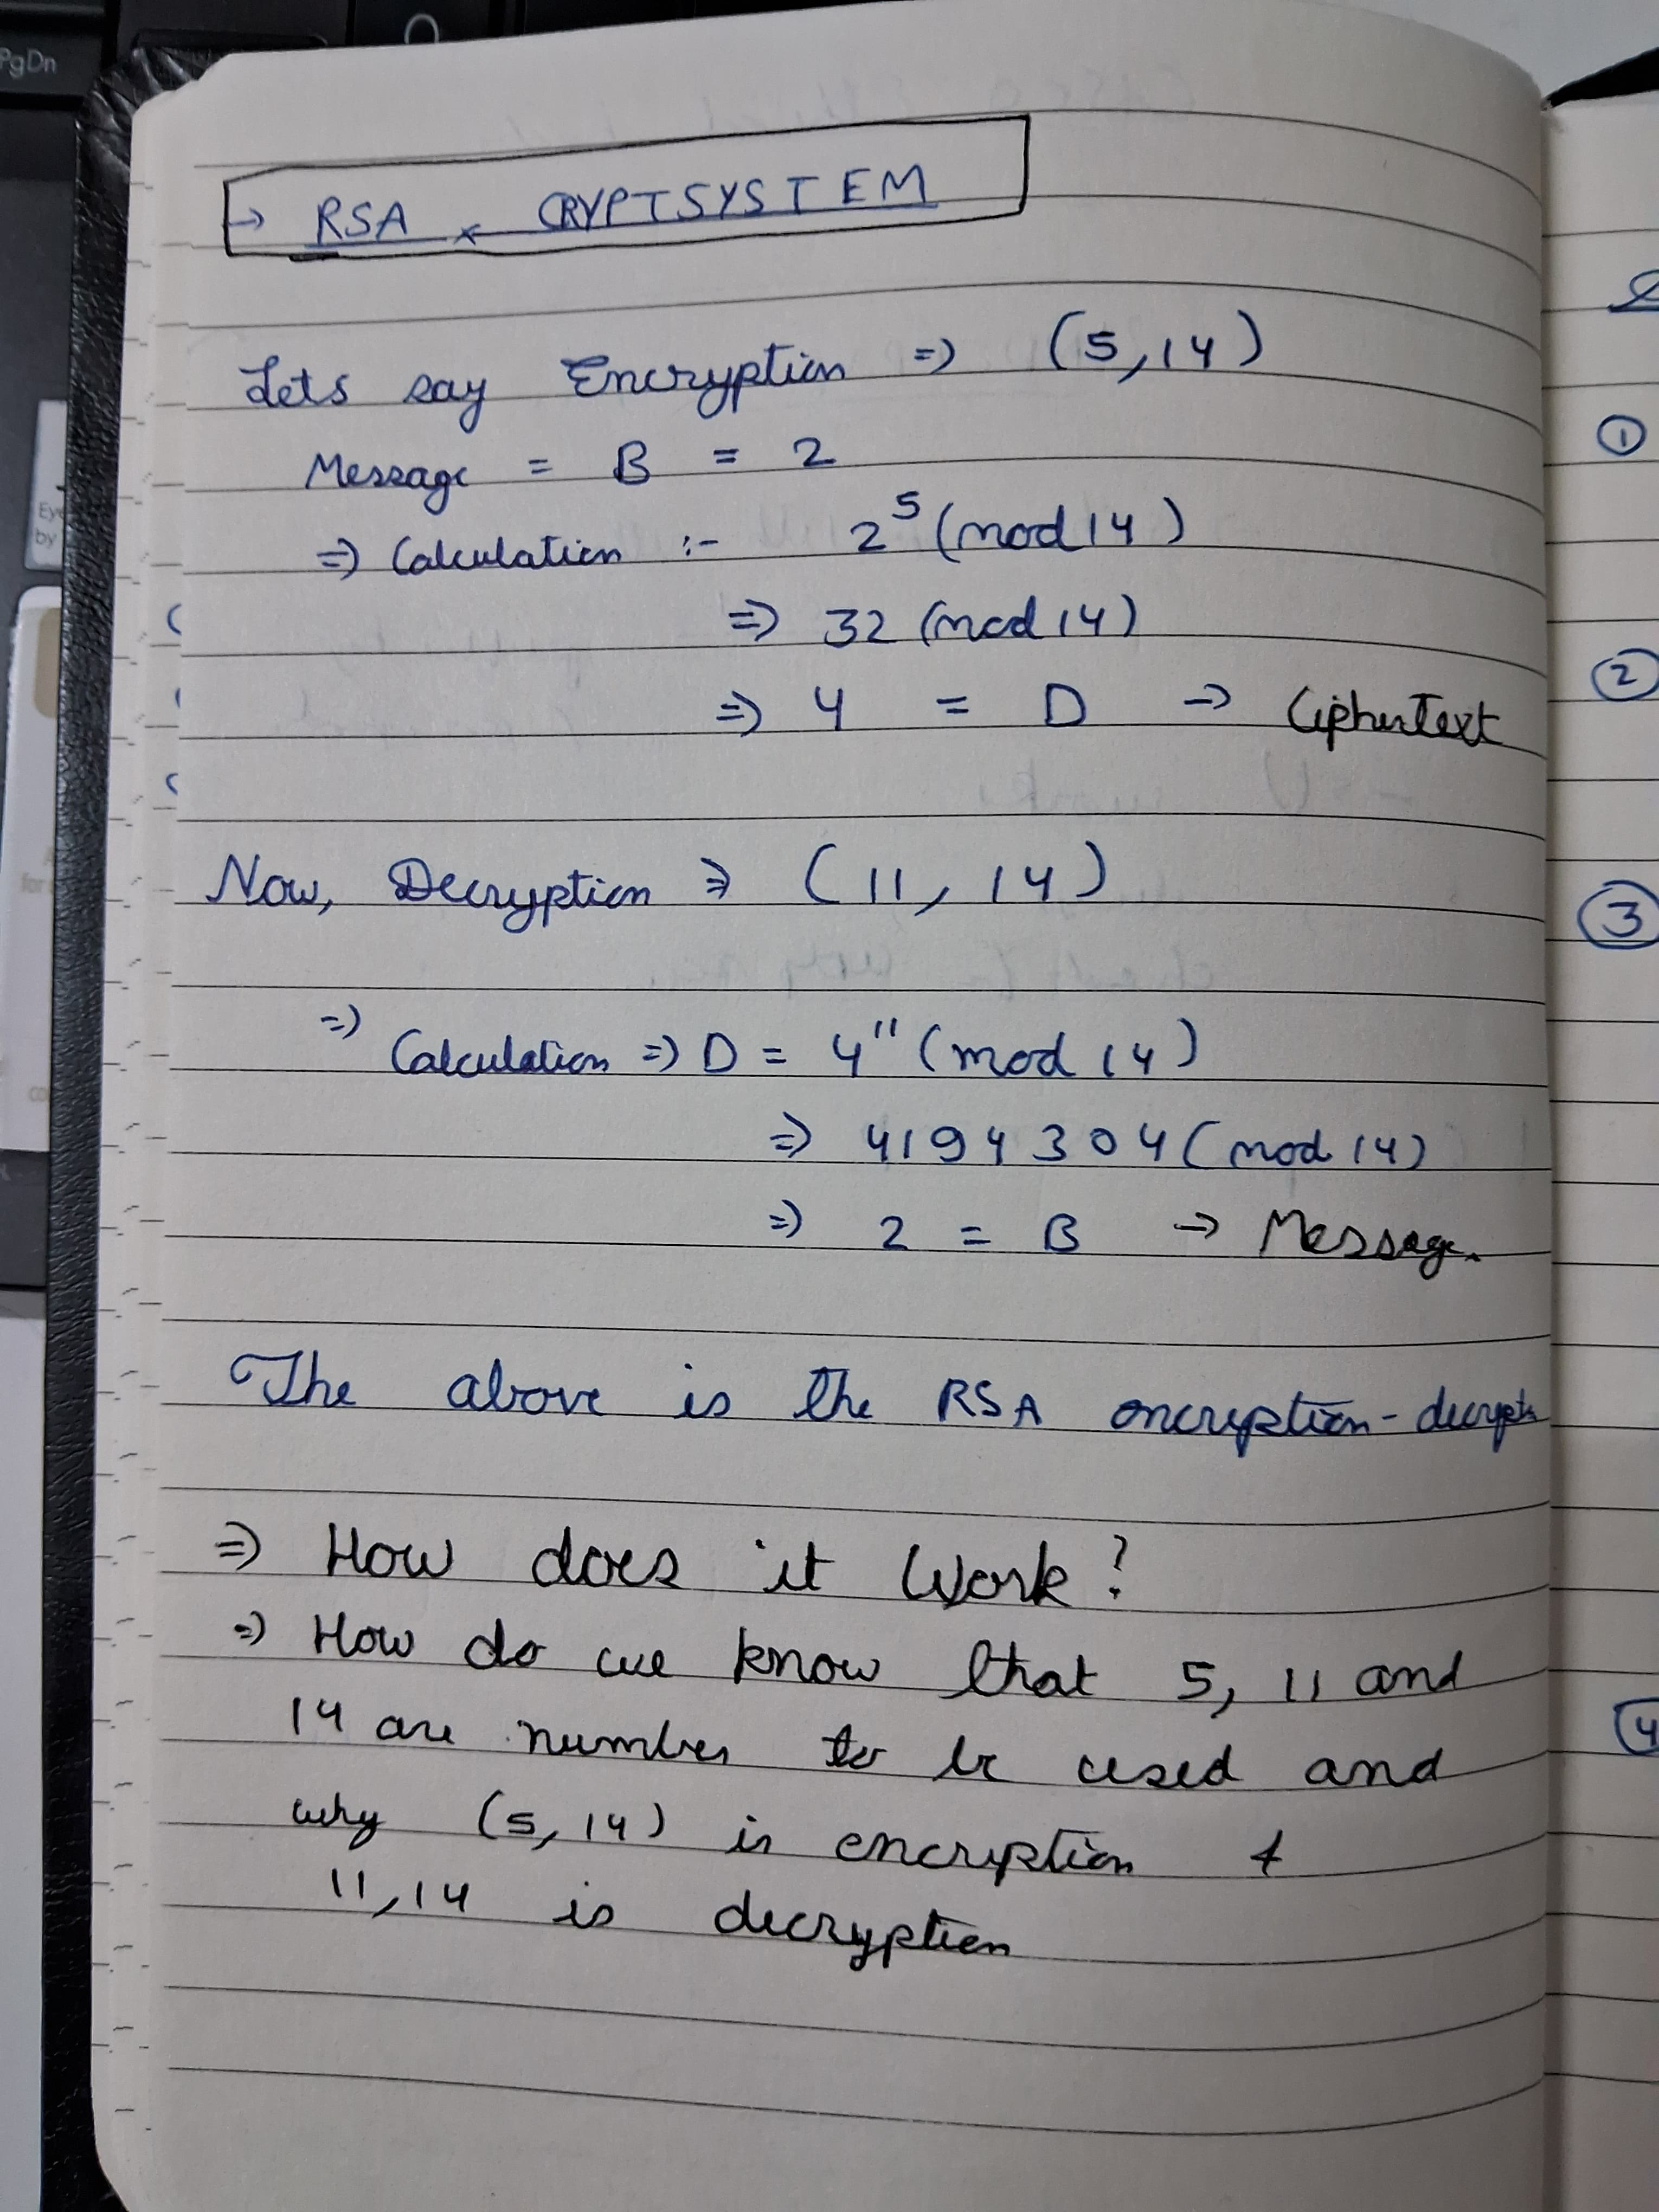 PgDn
→ RSA x CRYPTSYSTEM
Lets say Encryption => (5,14)
Message = B = 2
=> Calculation :- 2⁵ (mod 14)
=> 32 (mod 14)
=> 4 = D → CipherText
Now, Decryption => (11, 14)
=> Calculation => D = 4¹¹ (mod 14)
=> 4194304 (mod 14)
=> 2 = B → Message.
The above is the RSA encryption-decrypt
=> How does it Work?
=> How do we know that 5, 11 and
14 are number to be used and
why (5,14) is encryption &
11,14 is decryption
1
2
3
4